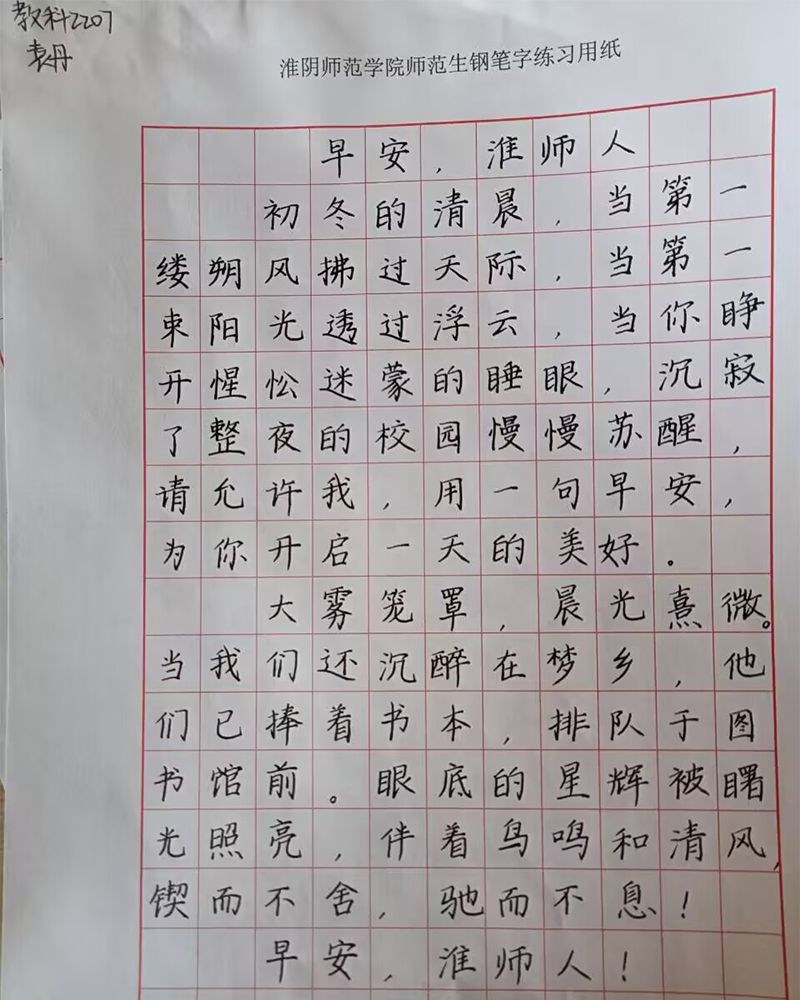 教科2207
袁丹
淮阴师范学院师范生钢笔字练习用纸
早安,淮师人
初冬的清晨,当第一
缕朔风拂过天际,当第一
束阳光透过浮云,当你睁
开惺忪迷蒙的睡眼,沉寂
了整夜的校园慢慢苏醒,
请允许我,用一句早安,
为你开启一天的美好。
大雾笼罩,晨光熹微。
当我们还沉醉在梦乡,他
们已捧着书本,排队于图
书馆前。眼底的星辉被曙
光照亮,伴着鸟鸣和清风,
锲而不舍,驰而不息!
早安,淮师人!